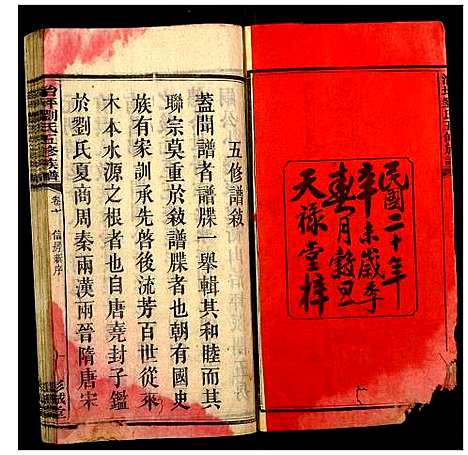 民國二十年
辛未歲季
春月穀旦
天祿堂梓
五修譜敘
蓋聞譜者譜牒一舉輯其和睦而其
聯宗莫重於敘譜牒者也朝有國史
族有家訓承先啓後流芳百世從來
木本水源之根者也自唐堯封子鑑
於劉氏夏商周秦兩漢兩晉隋唐宋
劉氏五修族譜
卷十
序
彭城堂